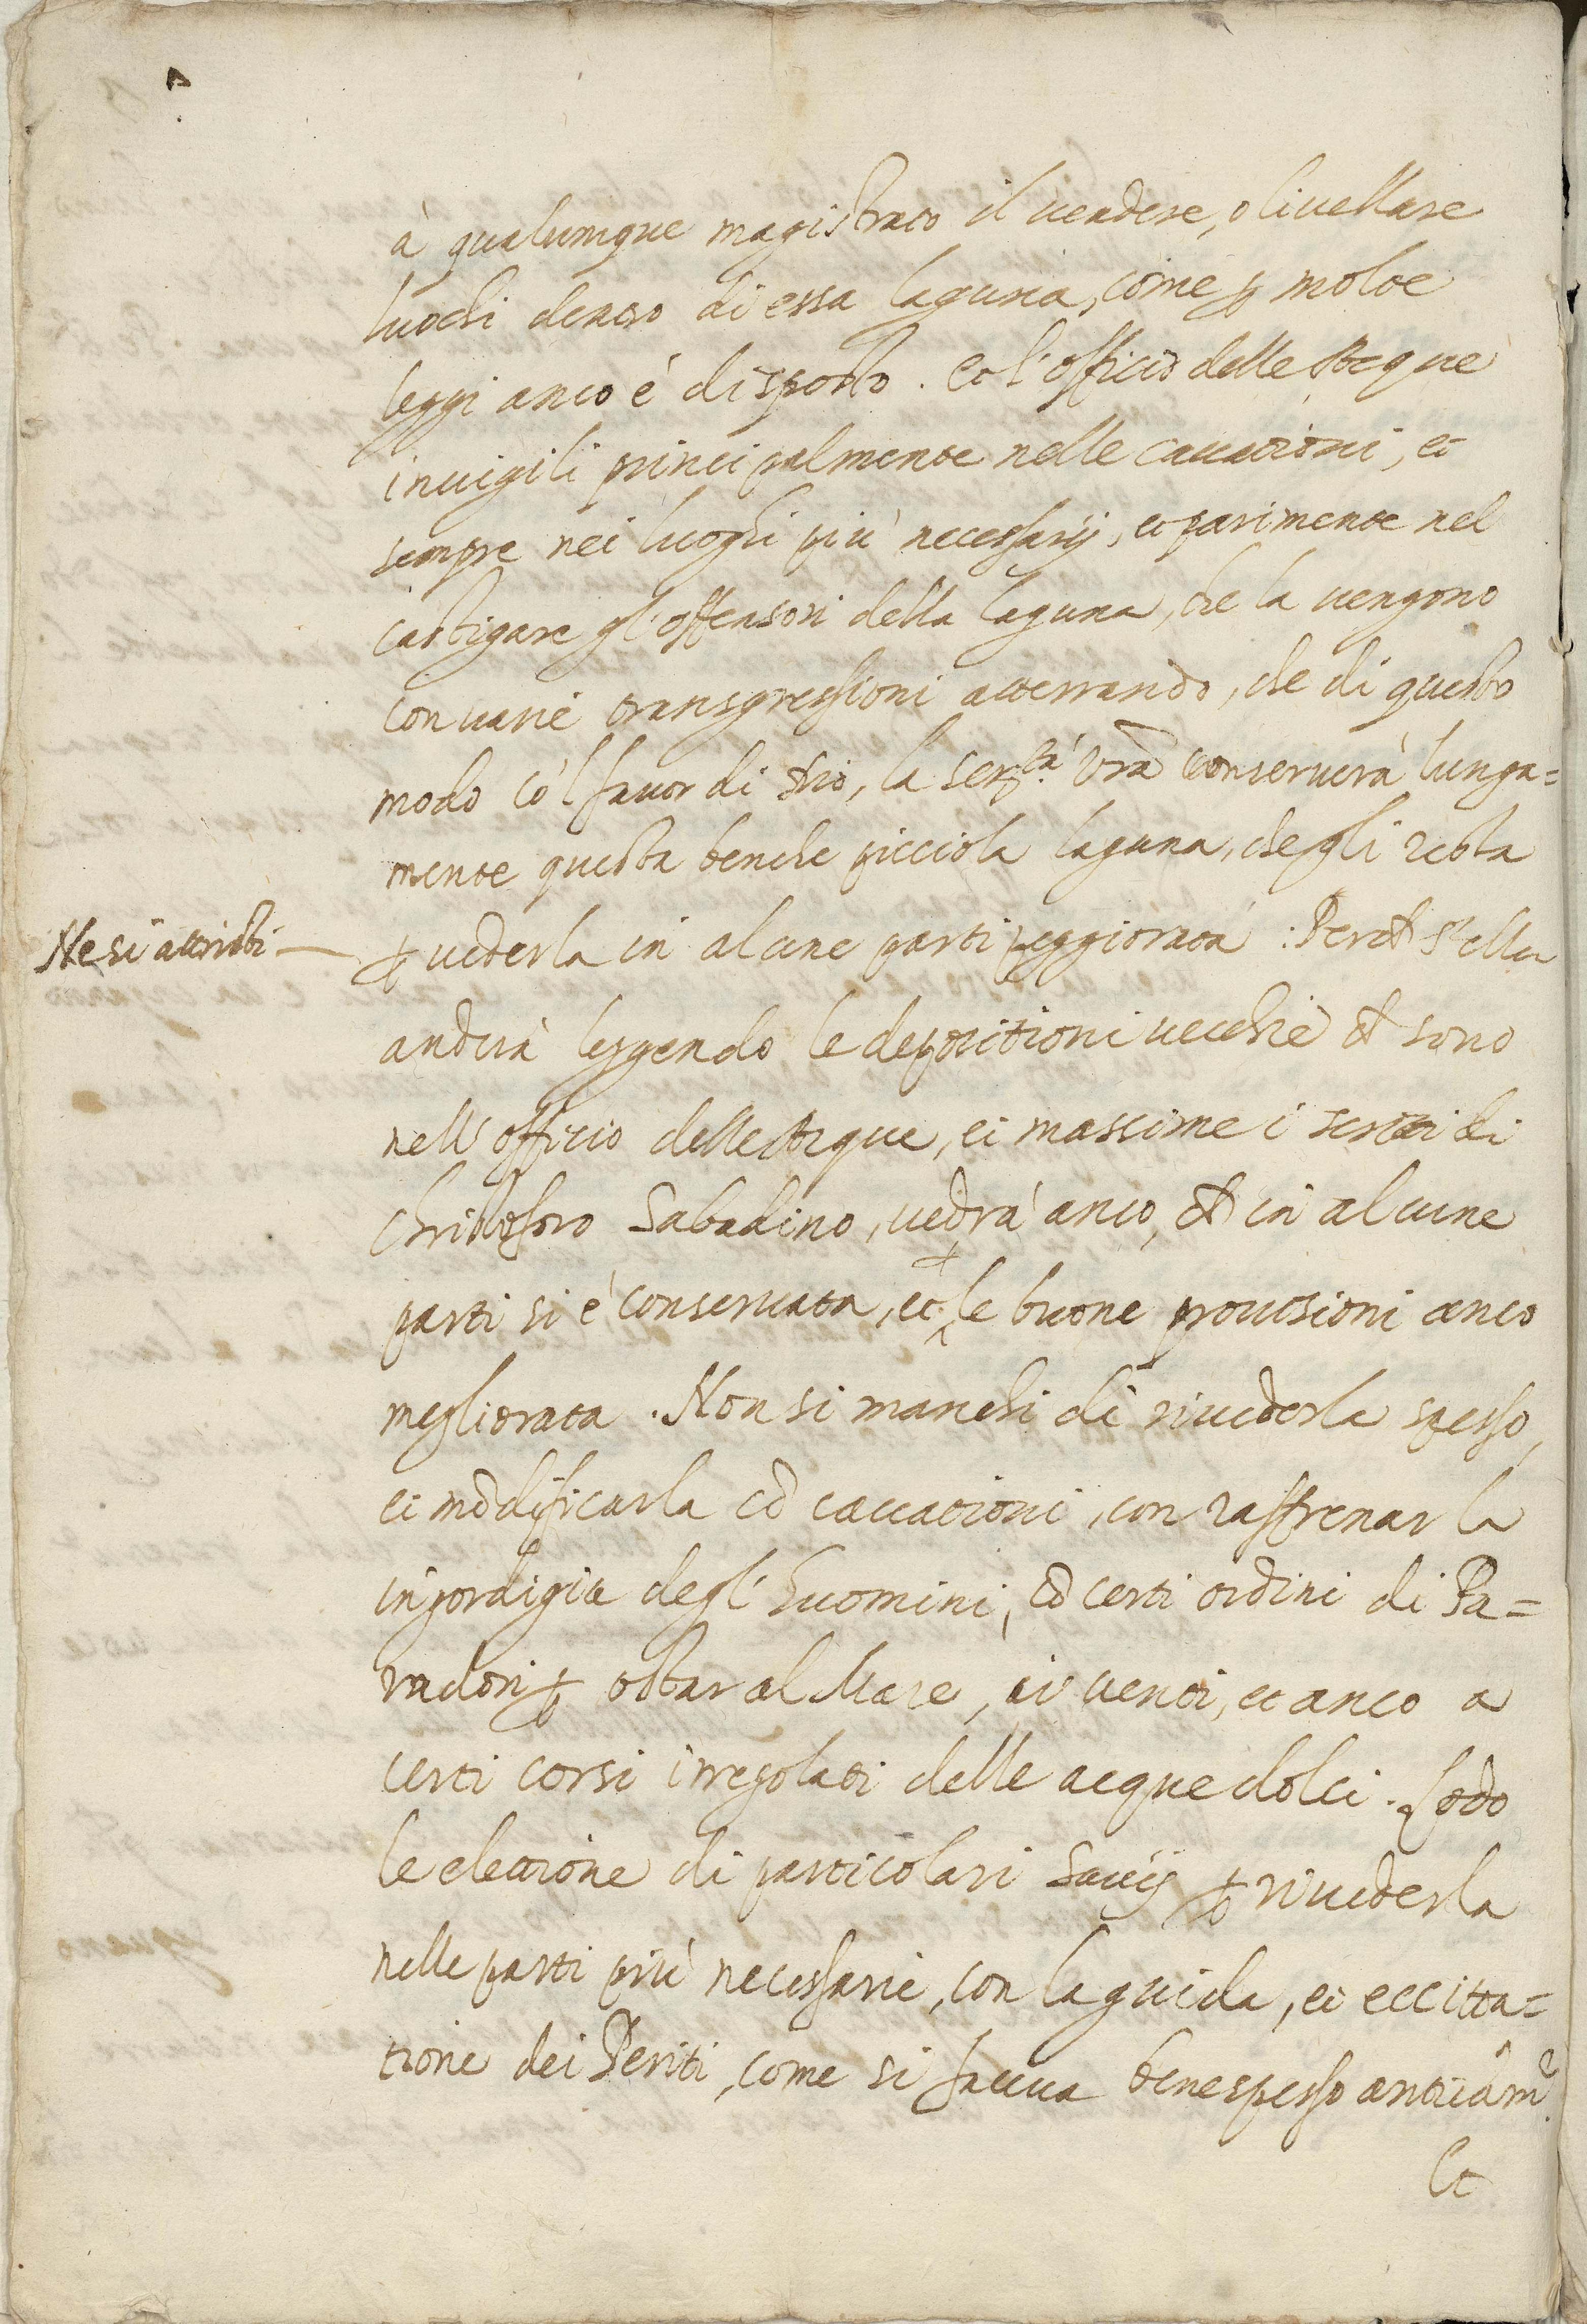 à qualunque magistrato il uendere, o liuellare
luochi dentro di essa laguna, come ꝑ molte
leggi anco é disposto. et l'officio delle Acque
inuigili principalmente nelle cauationi, et
sempre nei luoghi più necessarij, et parimente nel
castigare gl'offensori della laguna, che la uengono
con uarie transgressioni atterrando, che di questo
modo co'l fauor di Dio, la Ser.tà Vr̃a conseruerà lunga=
mente questa benche picciola laguna, che gli resta
Ne si attristi
ꝑ uederla in alcune parti peggiorata: Perch s'ella
anderà leggendo le depositioni uecchie ch sono
nell'officio delle Acque, et massime i scritti di
Christoforo Sabadino, uedrà anco, ch in alcune
parti si é conseruata, et ꝑ le buone prouisioni anco
megliorata. Non si manchi di riuederla spesso,
et modificarla cō cauationi, con raffrenar la
ingordigia degl'huomini, cō certi ordini di Pa=
radori ꝑ ostar al Mare, ai uenti, et anco a
certi corsi irregolati delle acque dolci. Lodo
le elettione di particolari Sauij ꝑ riuederla
nelle parti più necessarie, con la guida, et eccitta=
tione dei Periti, come si faceua bene spesso anticam.e
Et